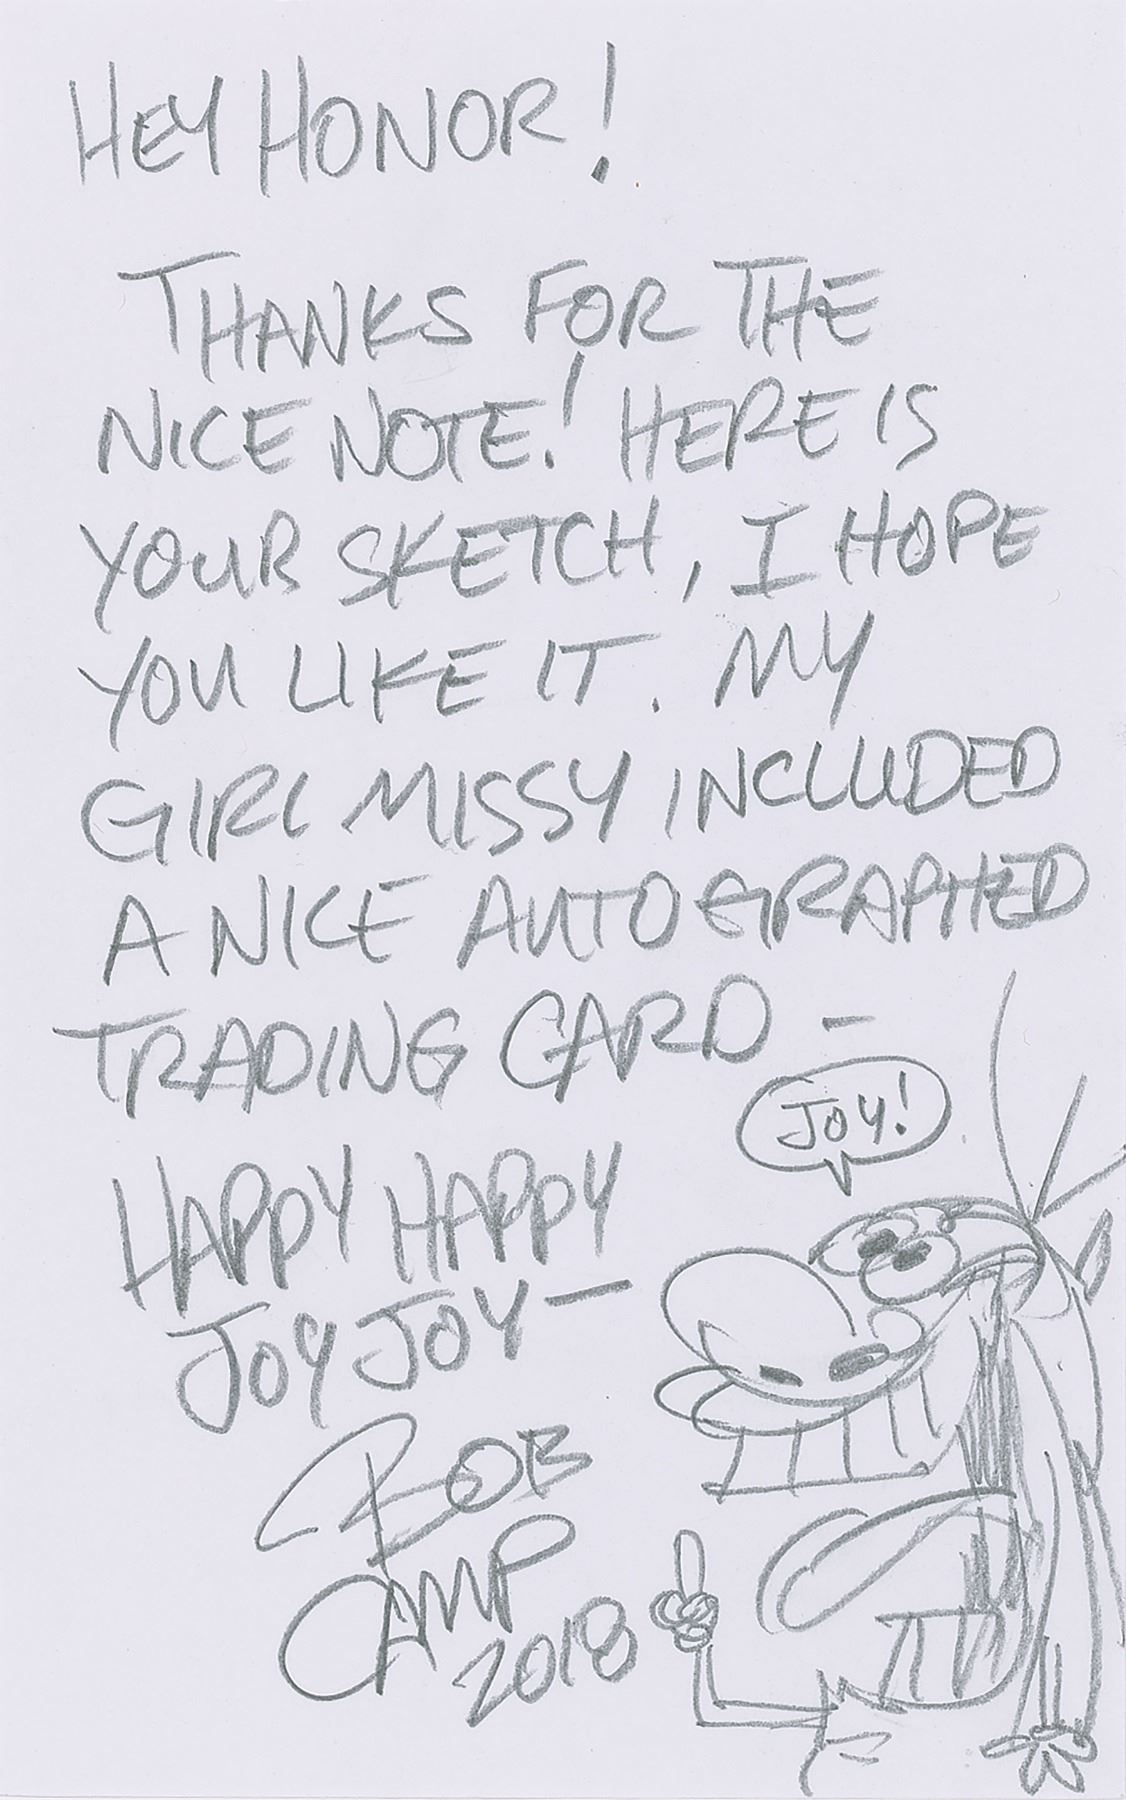 HEY HONOR!
THANKS FOR THE
NICE NOTE! HERE IS
YOUR SKETCH, I HOPE
YOU LIKE IT. MY
GIRL MISSY INCLUDED
A NICE AUTOGRAPHED
TRADING CARD –
JOY!
HAPPY HAPPY
JOY JOY –
BOB
CAMP
2018